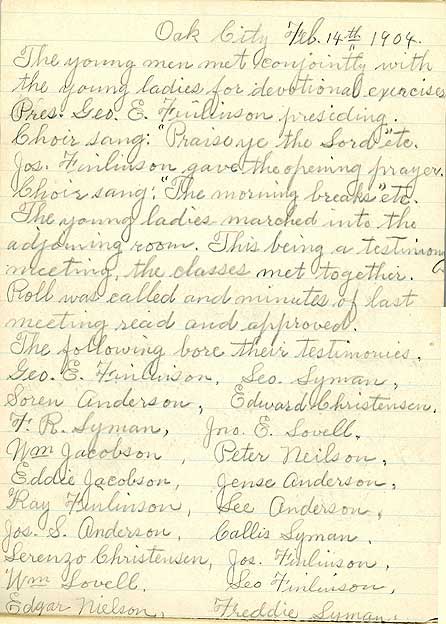 Oak City Feb. 14th 1904.
The young men met conjointly with
the young ladies for devotional exercises
Pres. Geo. E. Finlinson presiding.
Choir sang: "Praise ye the Lord" etc.
Jos. Finlinson gave the opening prayer.
Choir sang: "The morning breaks" etc.
The young ladies marched into the
adjoining room. This being a testimony
meeting, the classes met together.
Roll was called and minutes of last
meeting read and approved.
The following bore their testimonies.
Geo. E. Finlinson, Geo. Lyman,
Soren Anderson, Edward Christensen,
F. R. Lyman, Jno. E. Lovell,
Wm Jacobson, Peter Neilson,
Eddie Jacobson, Jense Anderson,
Ray Finlinson, Lee Anderson,
Jos. S. Anderson, Callis Lyman,
Lerenzo Christensen, Jos. Finlinson,
Wm Lovell. Leo Finlinson,
Edgar Nielson, Freddie Lyman,